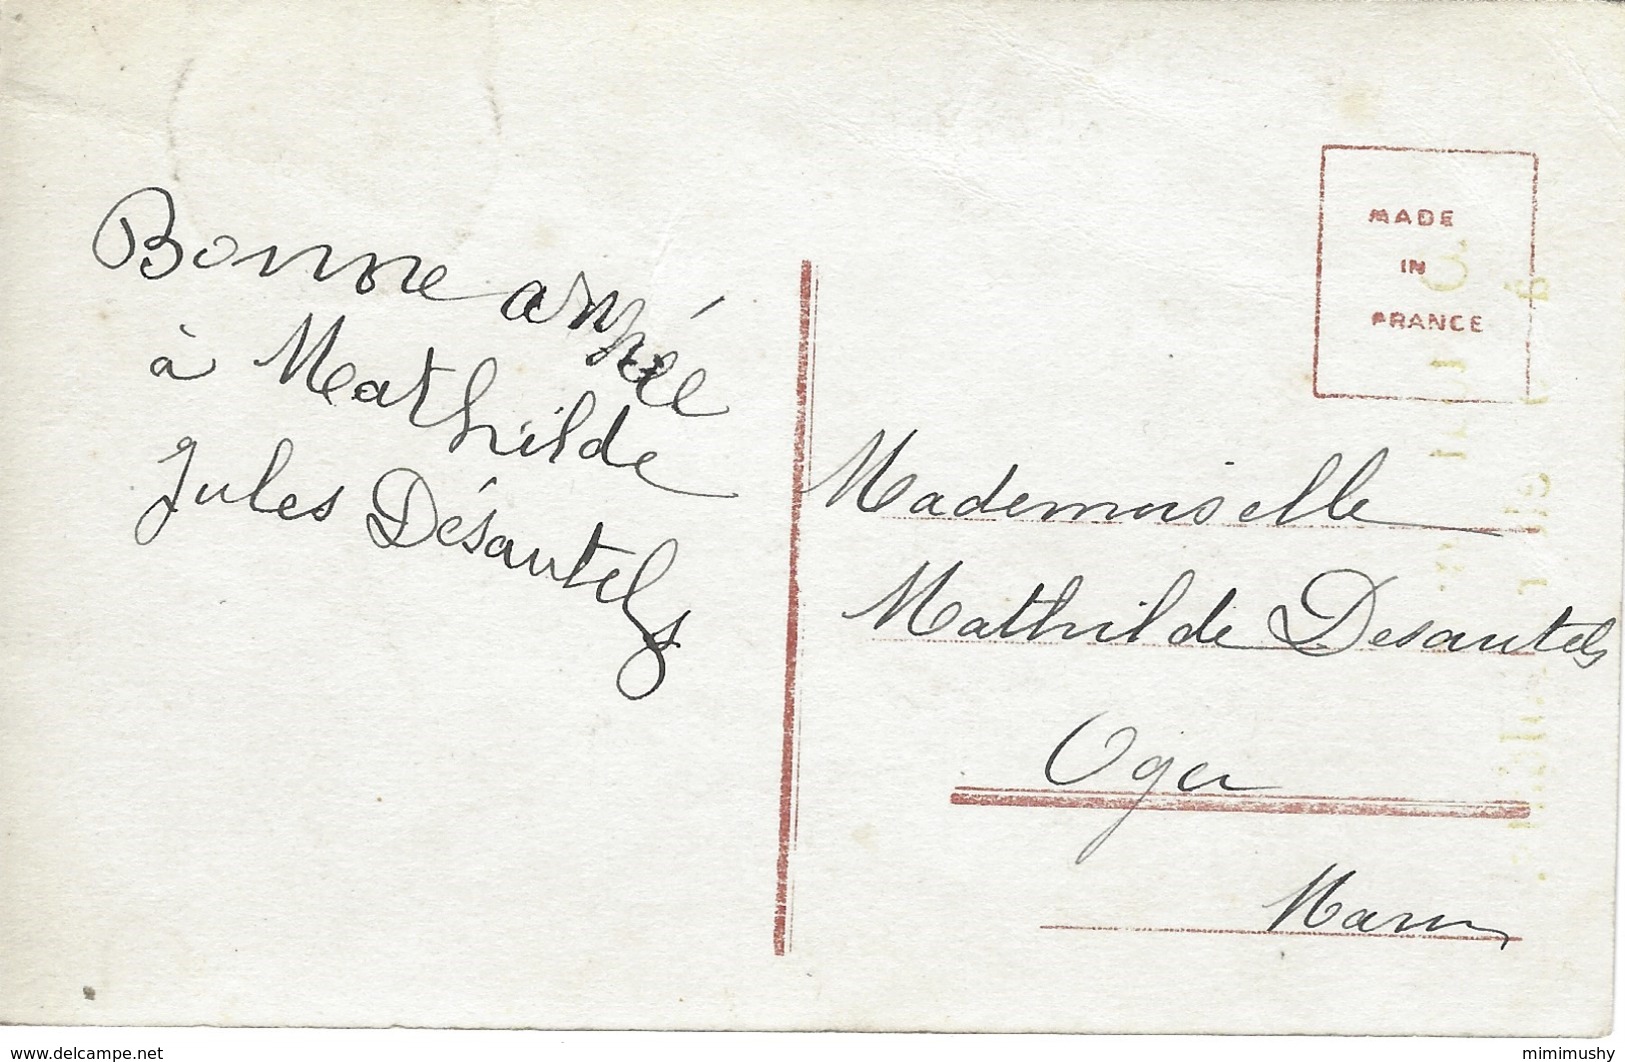 Bonne année
à Mathilde
Jules Désautels
MADE
IN
FRANCE
Mademoiselle
Mathilde Desautels
Oger
Marne
www.delcampe.net
mimimushy